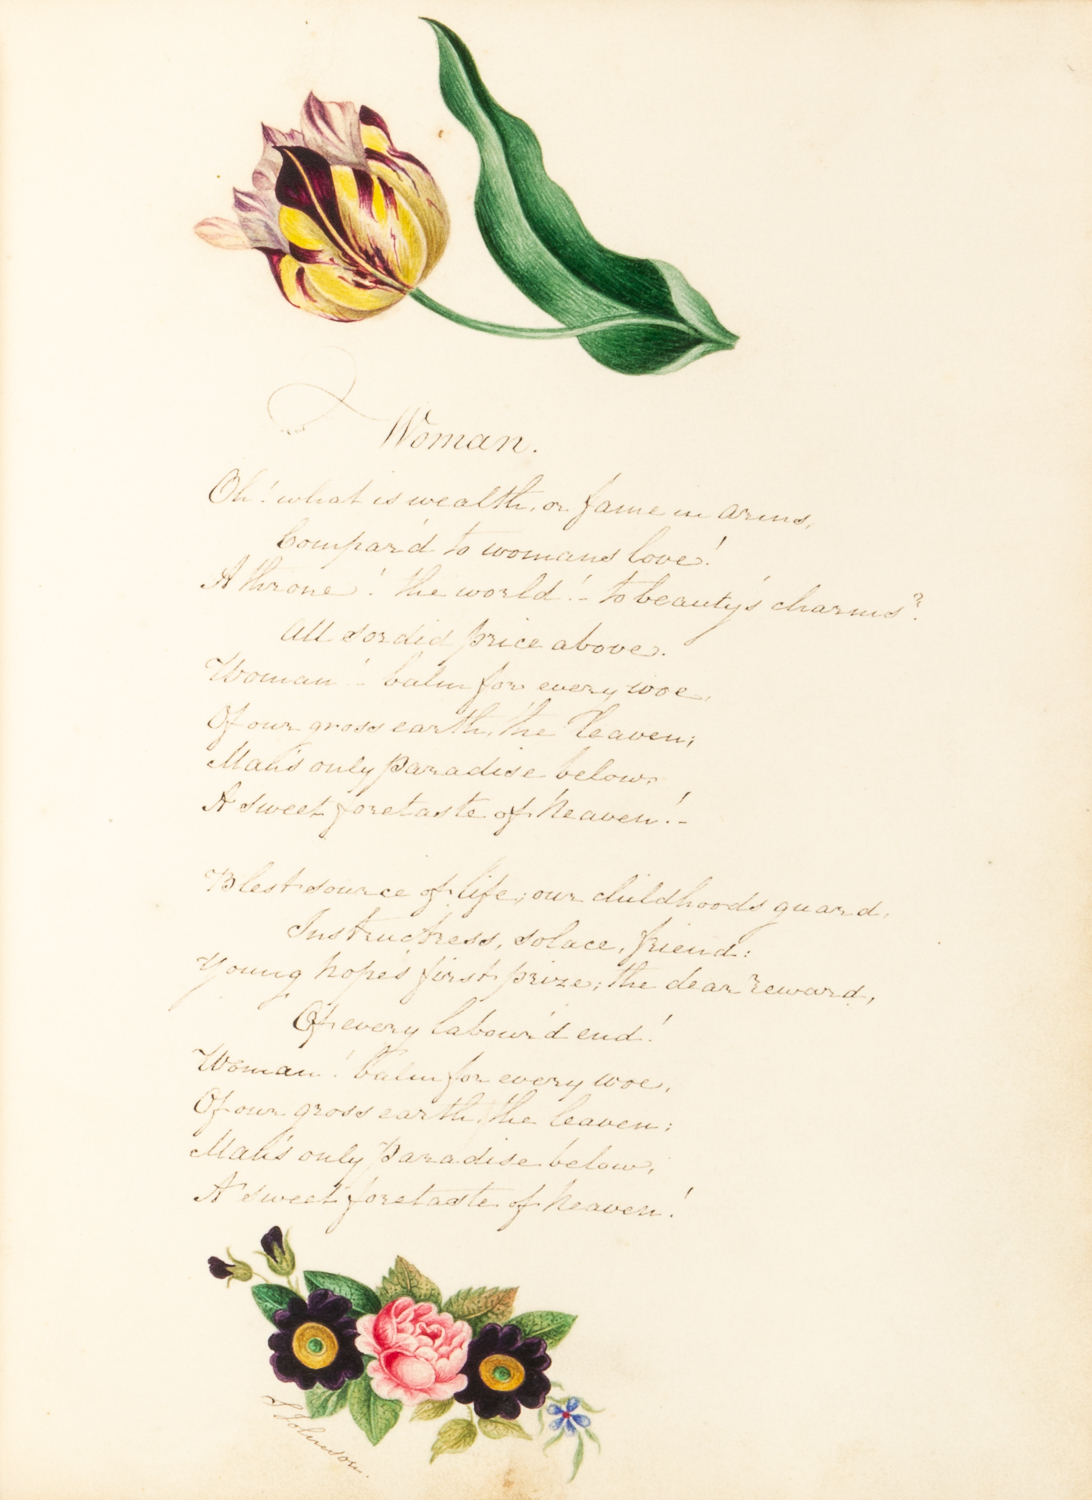 Woman.
Oh! what is wealth, or fame in arms,
Compar'd to womans love!
A throne! the world!- to beauty's charms?
All sordid price above.
Woman! balm for every woe,
Of our gross earth, the leaven;
Man's only Paradise below,
A sweet foretaste of heaven!-
Blest source of life; our childhoods guard,
Instructress, solace, friend:
Young hope's first prize; the dear reward,
Of every labour'd end!
Woman! balm for every woe,
Of our gross earth, the leaven;
Man's only Paradise below,
A sweet foretaste of heaven!
Johnson.